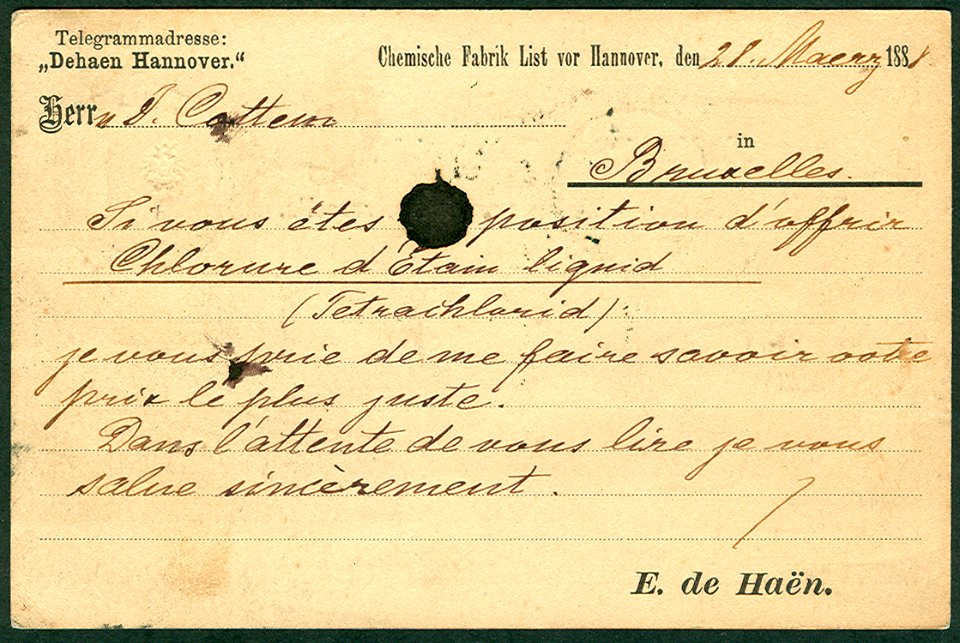 Telegrammadresse:
„Dehaen Hannover.“
Chemische Fabrik List vor Hannover, den 28. Maerz 1888
Herrn
in
Bruxelles.
Si vous êtes position d'offrir
Chlorure d'Étain liquid
(Tetrachlorid)
je vous prie de me faire savoir votre
prix le plus juste.
Dans l'attente de vous lire je vous
salue sincèrement.
E. de Haën.